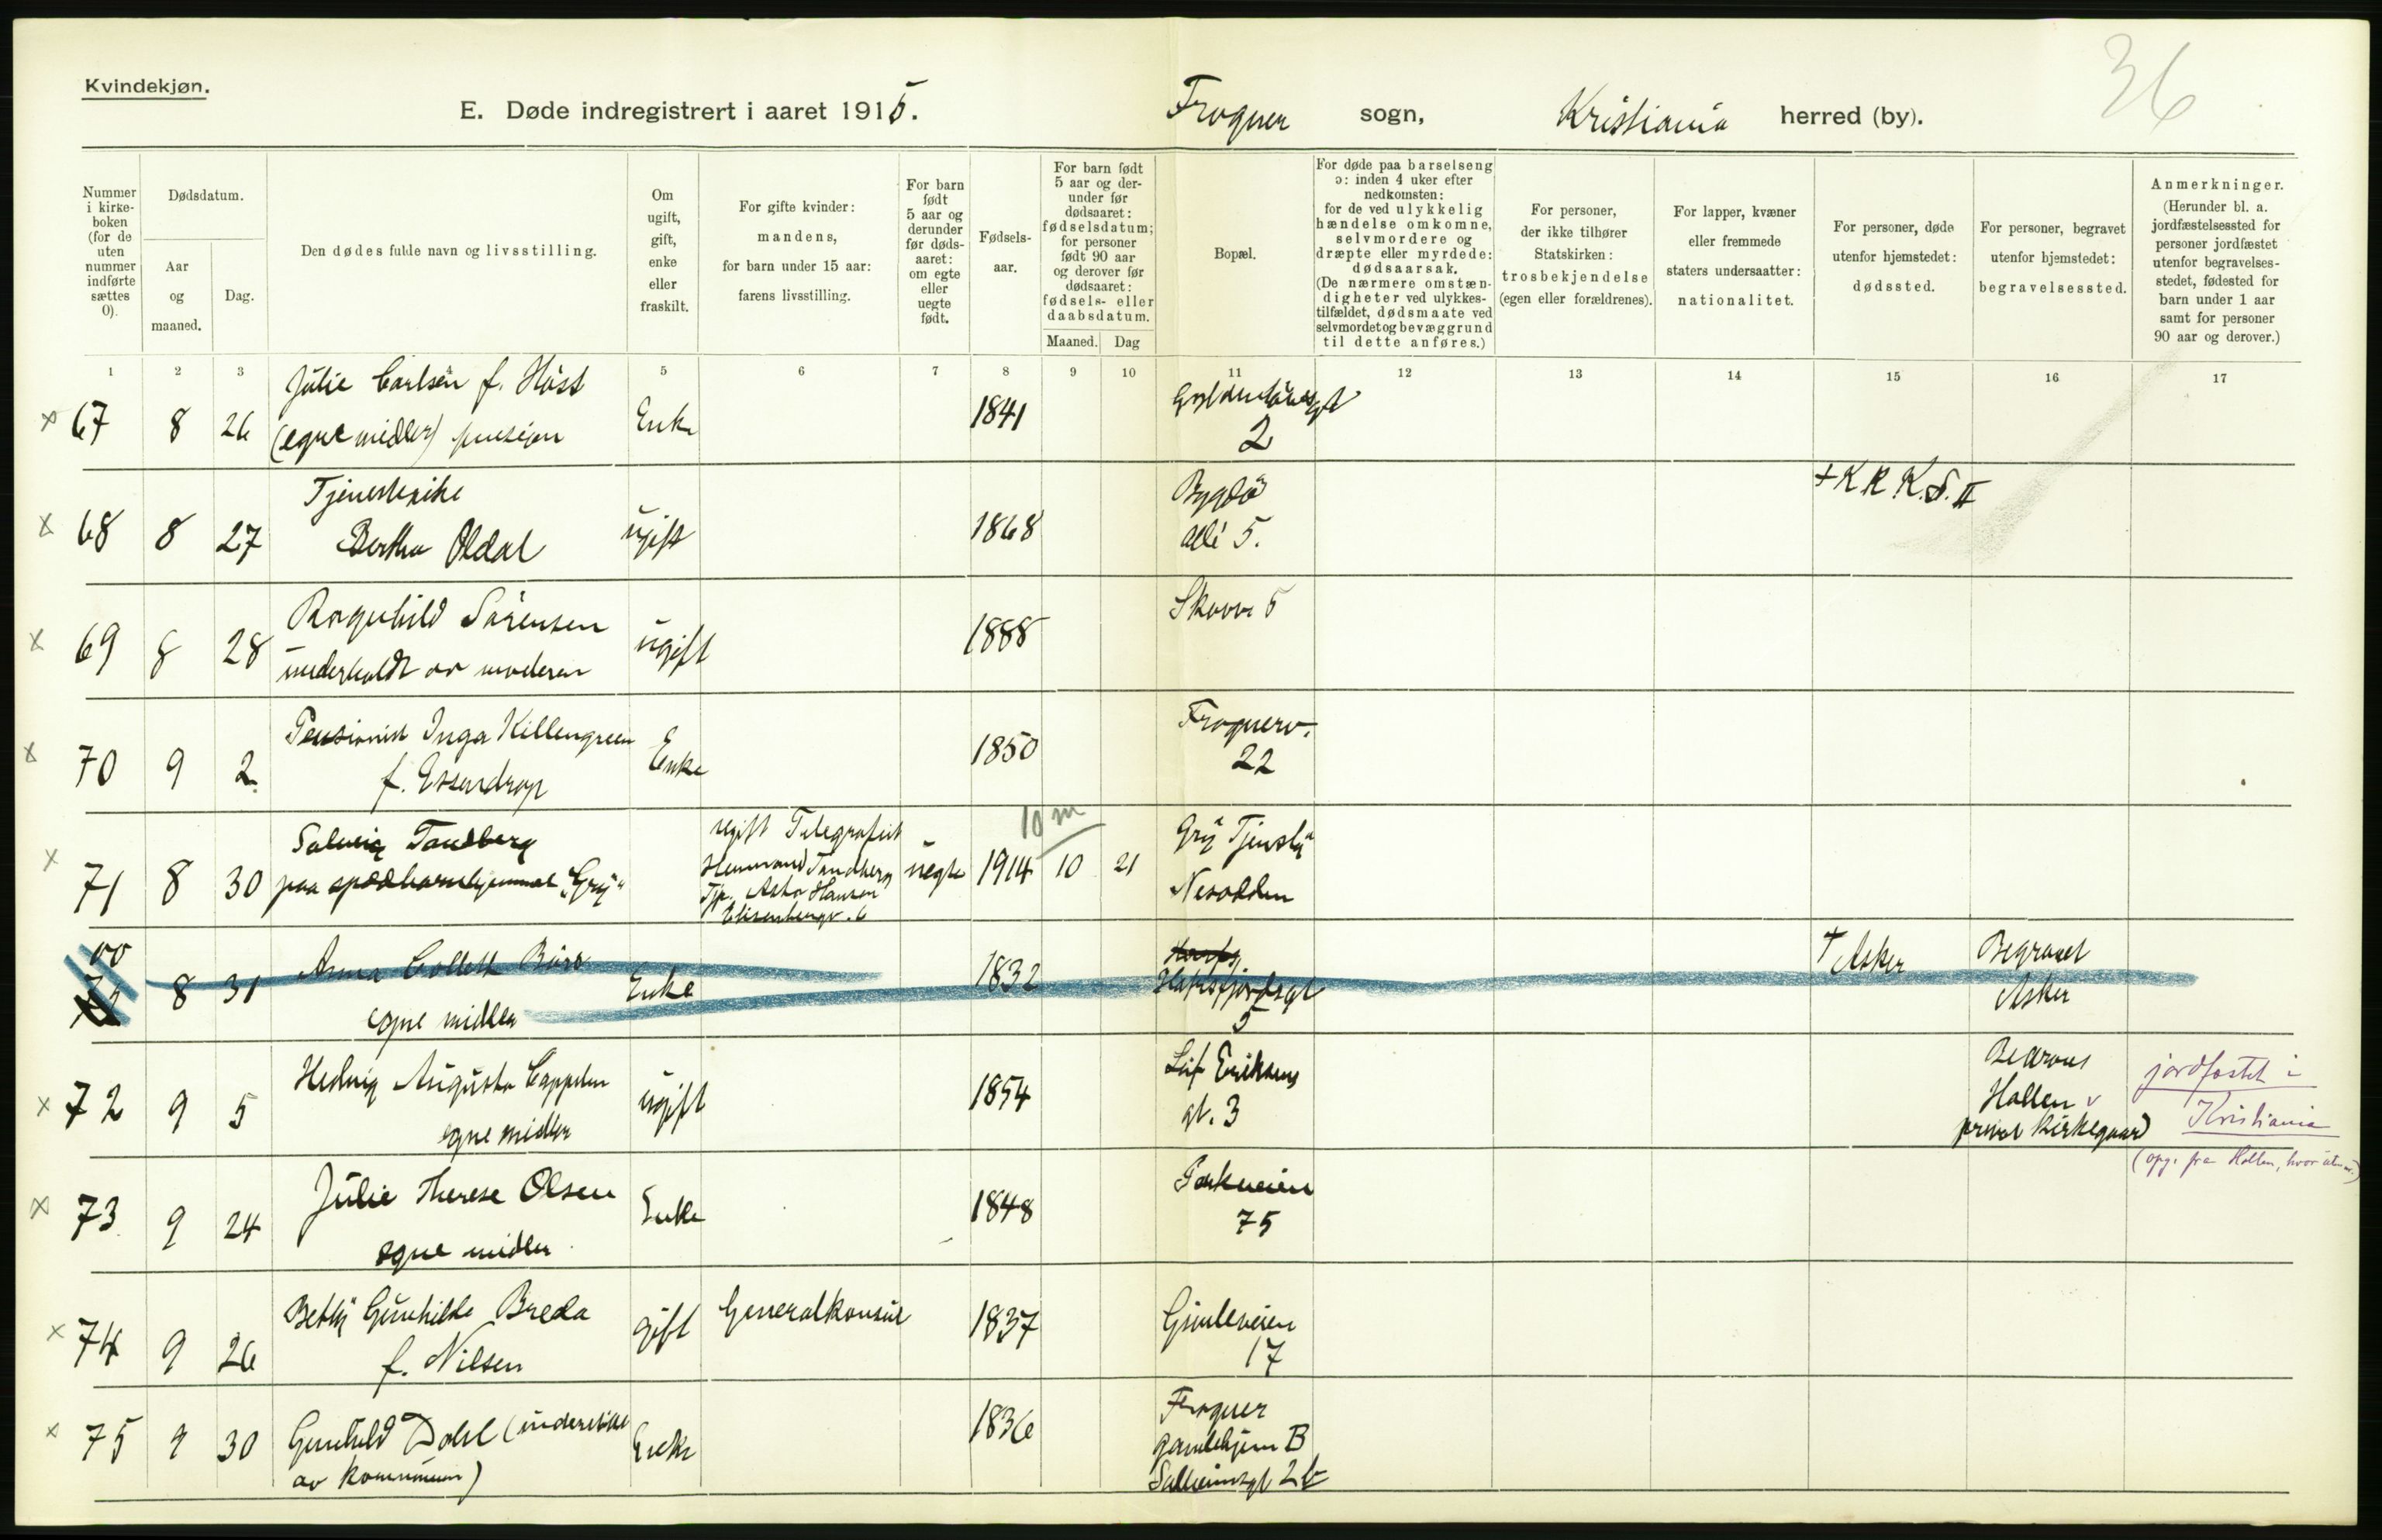 Kvindekjøn.
36
E. Døde indregistrert i aaret 1915.
Frogner sogn, Kristiania herred (by).
Nummer i kirke-boken (for de uten nummer indførte sættes 0).
Dødsdatum.
Aar og maaned.
Dag.
Den dødes fulde navn og livsstilling.
Om ugift, gift, enke eller fraskilt.
For gifte kvinder: mandens, for barn under 15 aar: farens livsstilling.
For barn født 5 aar og derunder før døds-aaret: om egte eller uegte født.
Fødsels-aar.
For barn født 5 aar og der-under før dødsaaret: fødselsdatum; for personer født 90 aar og derover før dødsaaret: fødsels- eller daabsdatum.
Maaned. Dag
Bopæl.
For døde paa barselseng ɔ: inden 4 uker efter nedkomsten: for de ved ulykkelig hændelse omkomne, selvmordere og dræpte eller myrdede: dødsaarsak. (De nærmere omstæn-digheter ved ulykkes-tilfældet, dødsmaate ved selvmordet og bevæggrund til dette anføres.)
For personer, der ikke tilhører Statskirken: trosbekjendelse (egen eller forældrenes).
For lapper, kvæner eller fremmede staters undersaatter: nationalitet.
For personer, døde utenfor hjemstedet: dødssted.
For personer, begravet utenfor hjemstedet: begravelsessted.
Anmerkninger. (Herunder bl. a. jordfæstelsessted for personer jordfæstet utenfor begravelses-stedet, fødested for barn under 1 aar samt for personer 90 aar og derover.)
1 2 3 4 5 6 7 8 9 10 11 12 13 14 15 16 17
x 67 8 26 Julie Carlsen f. Høst Enke 1841 Gyldenløvesgt
(egne midler) pension 2
x 68 8 27 Tjenestepike ugift 1868 Bygdø + K R K.S. II
Bertha Oldal allé 5.
x 69 8 28 Ragnhild Sørensen ugift 1888 Skovv. 5
underholdt av moderen
x 70 9 2 Pensionist Inga Killengreen Enke 1850 Frognerv.
f. Essendrop 22
10 m
x 71 8 30 Solveig Tandberg ugift Telegrafist uegte 1914 10 21
paa spædbarnhjemmet "Gry" Tandberg
Tjp. Asta Hansen
Elisenbergv. 6
Nesodden
00 8 31 Anna Collett Büro Enke 1832 Hafrsfjordsgt 5 † Asker Begravet Asker
egne midler
x 72 9 5 Hedvig Augusta Cappelen ugift 1854 Leif Eriksens gt. 3
egne midler
Hollen
privat kirkegaard
jordfæstet i
Kristiania
(opg. fra Hollen,
x 73 9 24 Julie Therese Olsen Enke 1848 Parkveien
egne midler 75
x 74 9 26 Betty Gunhilde Breda gift Generalkonsul 1837 Gimleveien
f. Nilsen 17
x 75 9 30 Gunhild Dahl (understøttet Enke 1836 Frogner
av kommunen) gamlehjem B